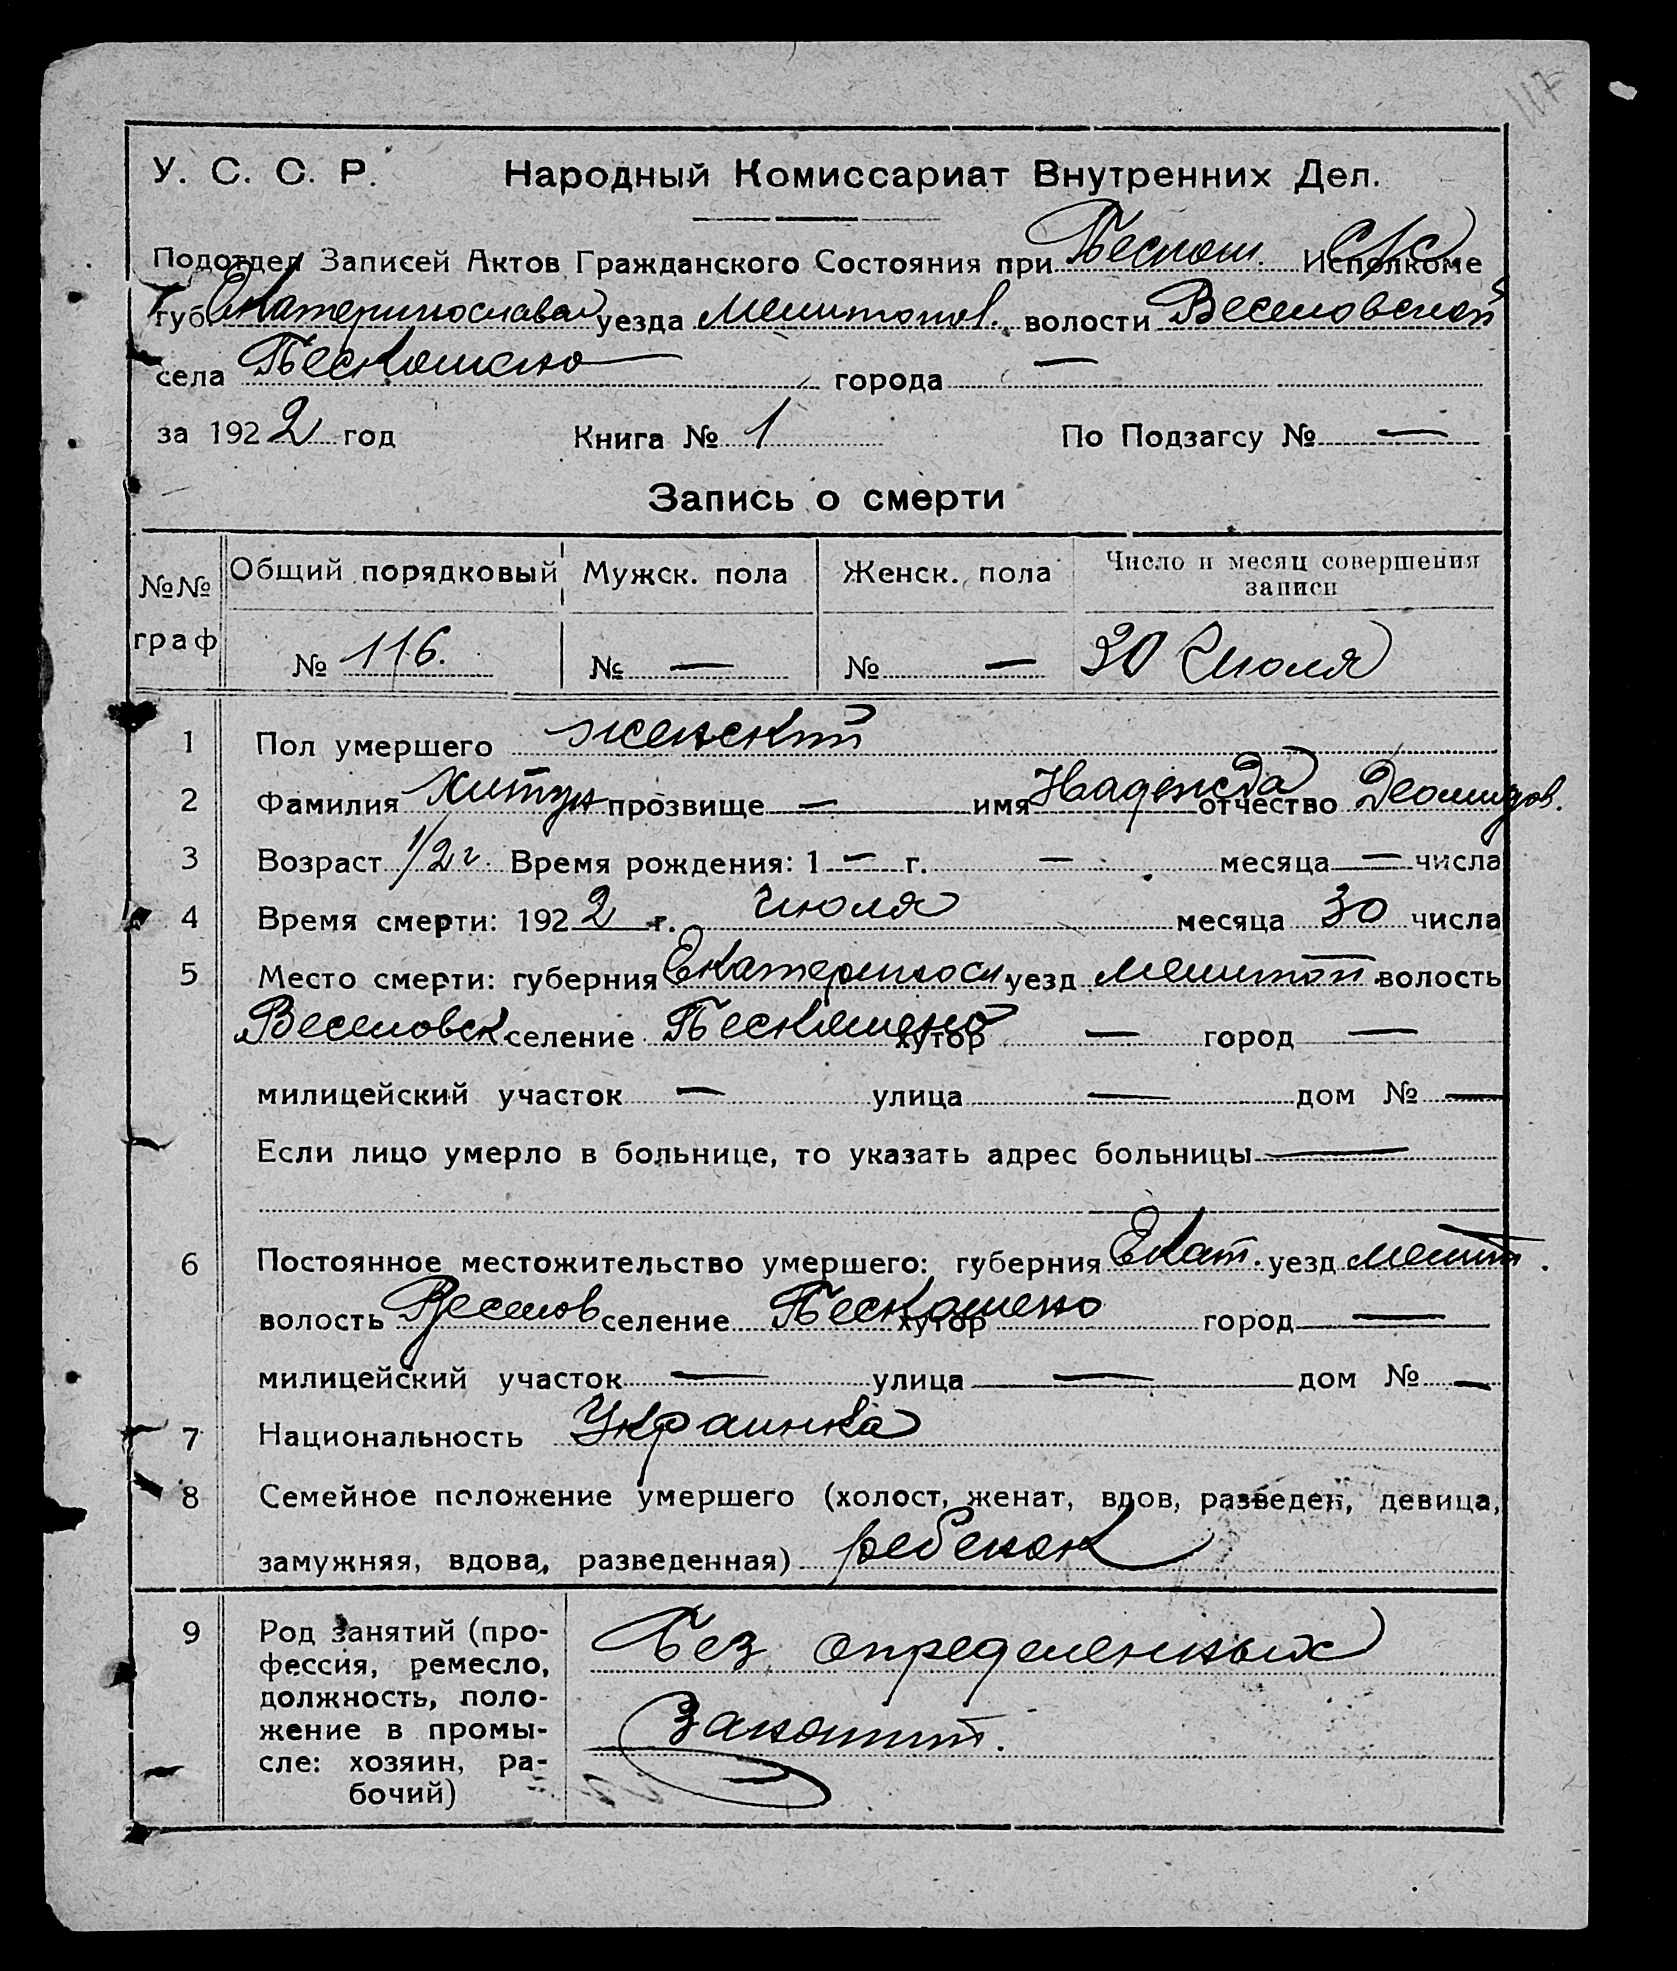 117
У. С. С. Р. Народный Комиссариат Внутренних Дел.
Подотдел Записей Актов Гражданского Состояния при Песком. Исполкоме
губ. Екатеринославск уезда Мелитопол. волости Веселовской
села города —
за 1922 год Книга № 1 По Подзагсу № —
Запись о смерти
№№ граф Общий порядковый Мужск. пола Женск. пола Число и месяц совершения записи
№ 116. № — № — 30 Июля
1 Пол умершего женский
2 Фамилия Хитун прозвище — имя Надежда отчество Деомидов.
3 Возраст 1/2 г. Время рождения: 1 — г. — месяца — числа
4 Время смерти: 1922 г. Июля месяца 30 числа
5 Место смерти: губерния Екатериносл уезд Мелитоп волость
Веселовск селение хутор — город —
милицейский участок — улица — дом № —
Если лицо умерло в больнице, то указать адрес больницы —
6 Постоянное местожительство умершего: губерния Екат. уезд Мелит.
волость Веселов селение хутор город —
милицейский участок — улица — дом № —
7 Национальность Украинка
8 Семейное положение умершего (холост, женат, вдов, разведен, девица,
замужняя, вдова, разведенная) ребенок
9 Род занятий (про-
фессия, ремесло,
должность, поло-
жение в промы-
сле: хозяин, ра-
бочий)
Без определенных
занятий.